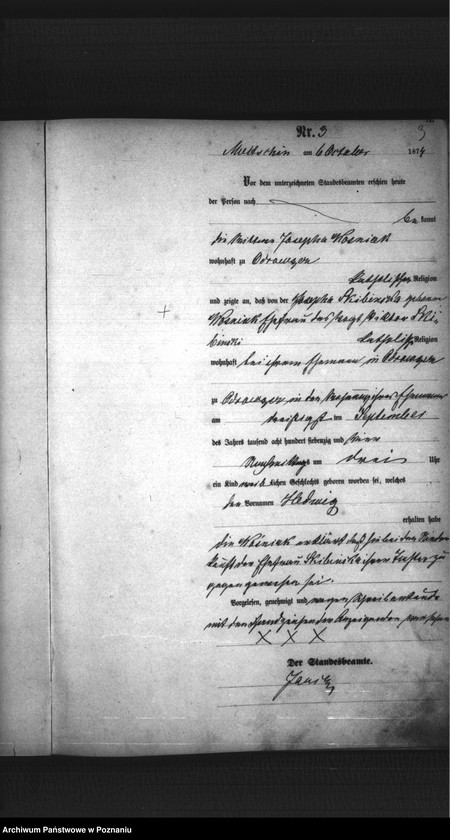 Nr. 3
3
Meltschin am 6 October 1874
Vor dem unterzeichneten Standesbeamten erschien heute
der Person nach
be kannt
die Wittwe Josepha Wosniak
wohnhaft zu
katholischer Religion
und zeigte an, daß von der Josepha Skibinska geborene
Wosniak Ehefrau des Vogts Viktor Ski-
binski katholischer Religion
wohnhaft bei ihrem Ehemann, in
zu in der Wohnung ihres Ehemannes
am dreißigst ten September
des Jahrs tausend acht hundert siebenzig und vier
Nachmittags um drei Uhr
ein Kind weiblichen Geschlechts geboren worden sei, welches
den Vornamen Hedwig
erhalten habe
die Wosniak erklärt daß sie bei der Nieder-
kunft der Ehefrau Skibinska ihrer Tochter zu-
gegen gewesen sei.
Vorgelesen, genehmigt und wegen Schreibunkunde
mit den Handzeichen der Anzeigenden versehen
X X X
Der Standesbeamte.
Archiwum Państwowe w Poznaniu